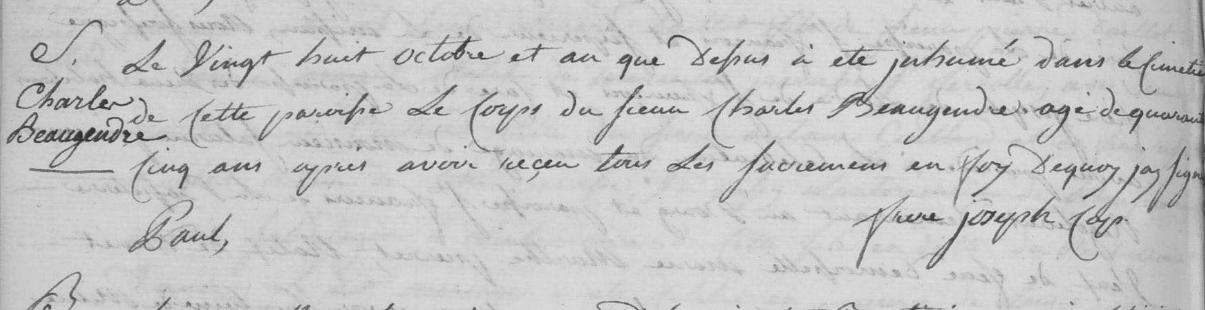 S. Le Vingt huit octobre et an que Dessus à eté inhumé dans le Cimetie
Charles
Beaugendre
de cette paroisse Le Corps du sieur Charles Beaugendre agé de quarant
Cinq ans apres avoir reçeu tous Les sacremens en foy Dequoy jay signé
frere joseph Cap.
Paul,